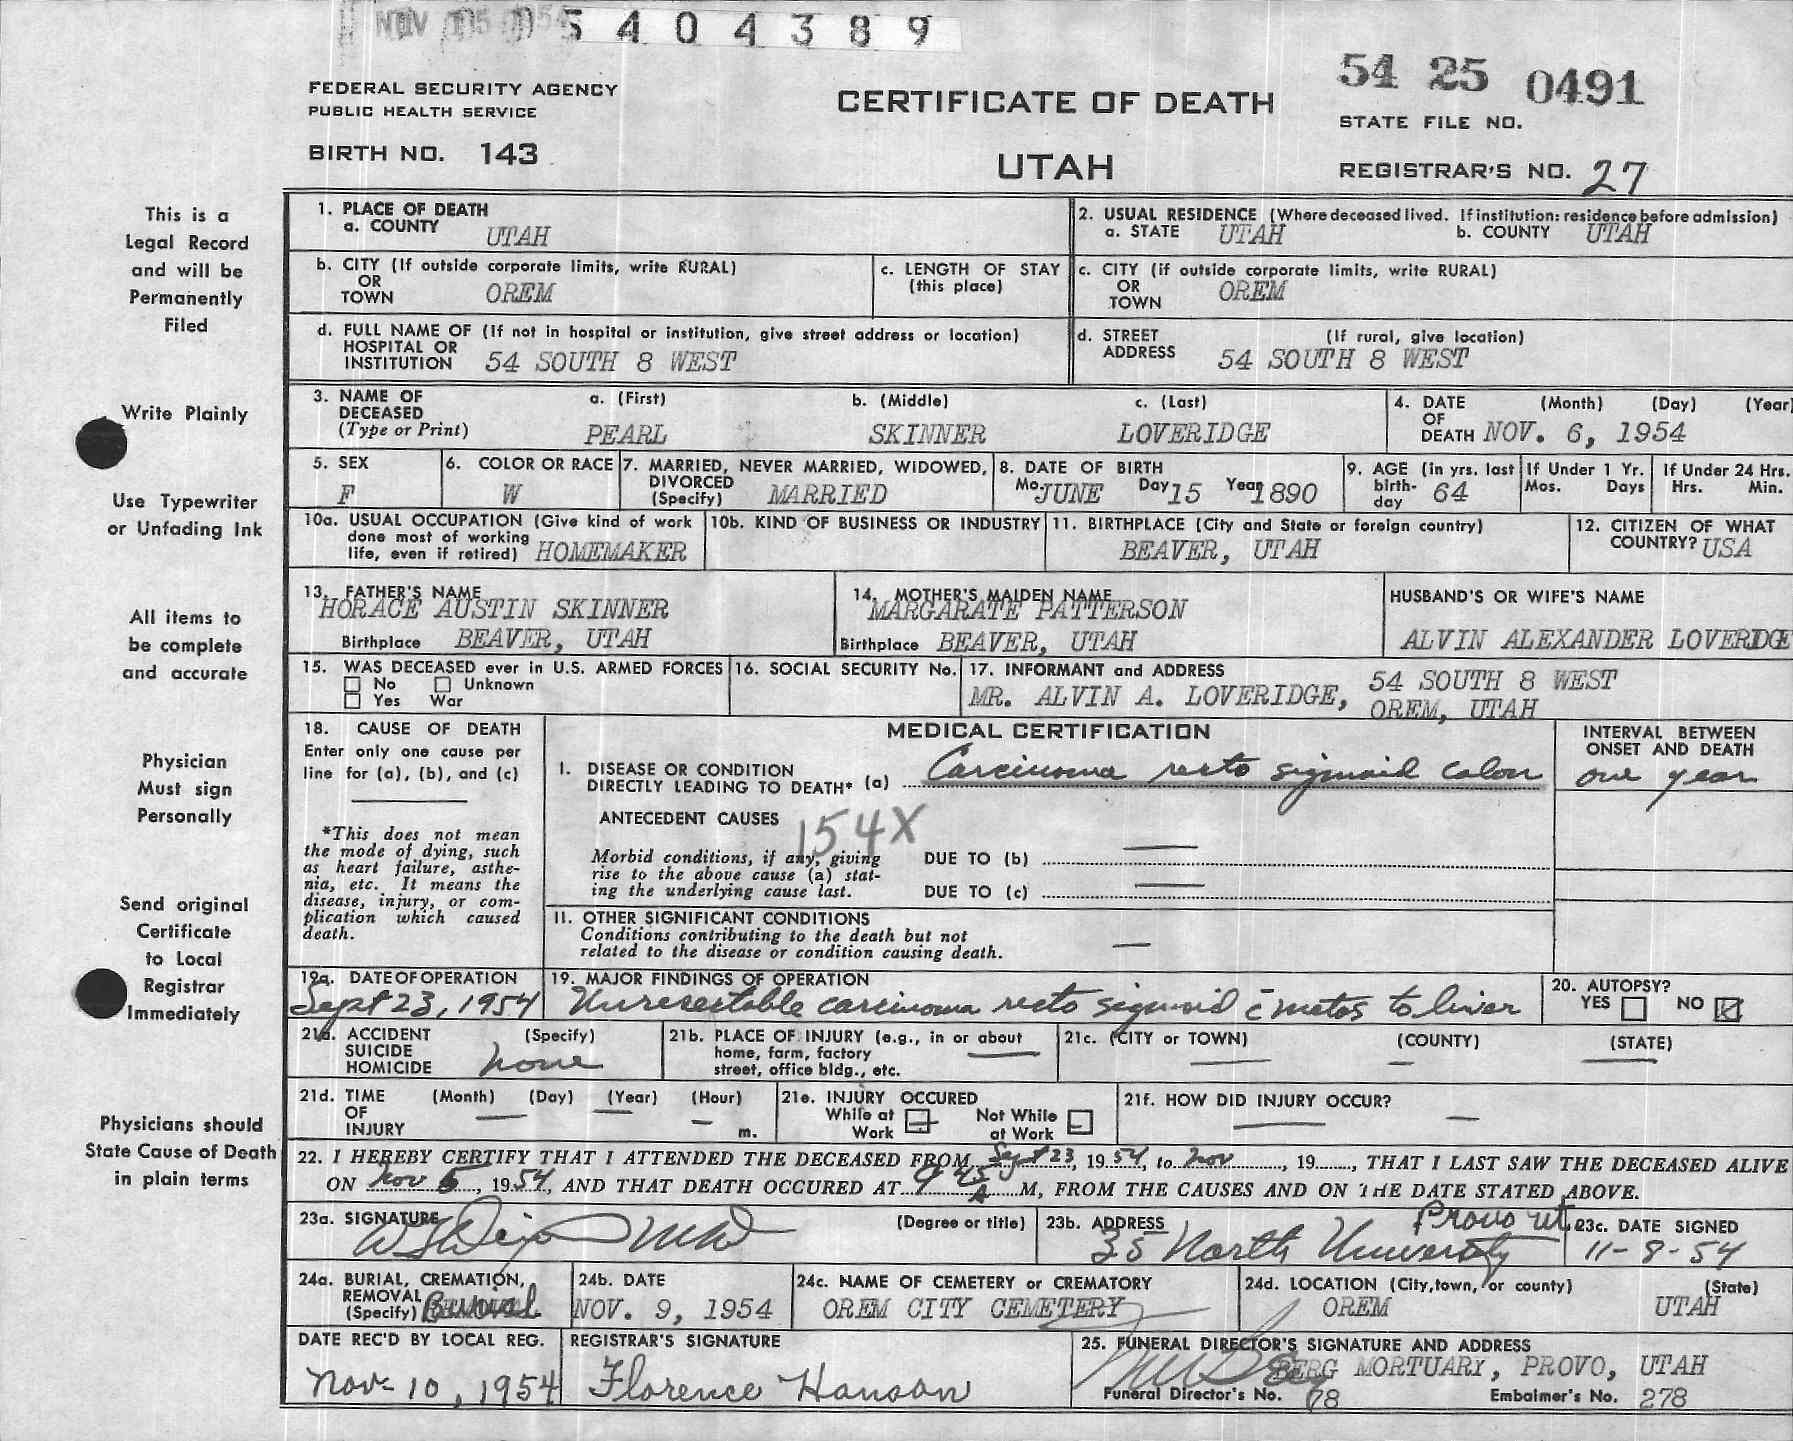 NOV 15 1954 5404389
54 25 0491
FEDERAL SECURITY AGENCY
PUBLIC HEALTH SERVICE
CERTIFICATE OF DEATH
STATE FILE NO.
BIRTH NO. 143
UTAH
REGISTRAR'S NO. 27
This is a
Legal Record
and will be
Permanently
Filed
Write Plainly
Use Typewriter
or Unfading Ink
All items to
be complete
and accurate
Physician
Must sign
Personally
Send original
Certificate
to Local
Registrar
Immediately
Physicians should
State Cause of Death
in plain terms
1. PLACE OF DEATH
a. COUNTY UTAH
2. USUAL RESIDENCE (Where deceased lived. If institution: residence before admission)
a. STATE UTAH b. COUNTY UTAH
b. CITY (If outside corporate limits, write RURAL)
OR
TOWN OREM
c. LENGTH OF STAY
(this place)
c. CITY (if outside corporate limits, write RURAL)
OR
TOWN OREM
d. FULL NAME OF (If not in hospital or institution, give street address or location)
HOSPITAL OR
INSTITUTION 54 SOUTH 8 WEST
d. STREET (If rural, give location)
ADDRESS 54 SOUTH 8 WEST
3. NAME OF
DECEASED
(Type or Print)
a. (First) b. (Middle) c. (Last)
PEARL SKINNER LOVERIDGE
4. DATE (Month) (Day) (Year)
OF
DEATH NOV. 6, 1954
5. SEX
F
6. COLOR OR RACE
W
7. MARRIED, NEVER MARRIED, WIDOWED,
DIVORCED
(Specify) MARRIED
8. DATE OF BIRTH
Mo. JUNE Day 15 Year 1890
9. AGE (in yrs. last
birth-
day 64
If Under 1 Yr.
Mos. Days
If Under 24 Hrs.
Hrs. Min.
10a. USUAL OCCUPATION (Give kind of work
done most of working
life, even if retired) HOMEMAKER
10b. KIND OF BUSINESS OR INDUSTRY
11. BIRTHPLACE (City and State or foreign country)
BEAVER, UTAH
12. CITIZEN OF WHAT
COUNTRY? USA
13. FATHER'S NAME
HORACE AUSTIN SKINNER
Birthplace BEAVER, UTAH
14. MOTHER'S MAIDEN NAME
MARGARATE PATTERSON
Birthplace BEAVER, UTAH
HUSBAND'S OR WIFE'S NAME
ALVIN ALEXANDER LOVERIDGE
15. WAS DECEASED ever in U.S. ARMED FORCES
No Unknown
Yes War
16. SOCIAL SECURITY No.
17. INFORMANT and ADDRESS
MR. ALVIN A. LOVERIDGE, 54 SOUTH 8 WEST
OREM, UTAH
18. CAUSE OF DEATH
Enter only one cause per
line for (a), (b), and (c)
*This does not mean
the mode of dying, such
as heart failure, asthe-
nia, etc. It means the
disease, injury, or com-
plication which caused
death.
MEDICAL CERTIFICATION
I. DISEASE OR CONDITION
DIRECTLY LEADING TO DEATH* (a) Carcinoma recto sigmoid colon
INTERVAL BETWEEN
ONSET AND DEATH
one year
ANTECEDENT CAUSES
154X
Morbid conditions, if any, giving
rise to the above cause (a) stat-
ing the underlying cause last.
DUE TO (b) —
DUE TO (c) —
II. OTHER SIGNIFICANT CONDITIONS
Conditions contributing to the death but not
related to the disease or condition causing death. —
19a. DATE OF OPERATION
Sept 23, 1954
19. MAJOR FINDINGS OF OPERATION
Unresectable carcinoma recto sigmoid c̄ metas to liver
20. AUTOPSY?
YES NO
21a. ACCIDENT (Specify)
SUICIDE
HOMICIDE none
21b. PLACE OF INJURY (e.g., in or about
home, farm, factory —
street, office bldg., etc.
21c. (CITY or TOWN) (COUNTY) (STATE)
— — —
21d. TIME (Month) (Day) (Year) (Hour)
OF — — —
INJURY m.
21e. INJURY OCCURED
While at Not While
Work at Work
21f. HOW DID INJURY OCCUR?
— —
22. I HEREBY CERTIFY THAT I ATTENDED THE DECEASED FROM Sept 23, 1954, to Nov, 19, THAT I LAST SAW THE DECEASED ALIVE
ON Nov 5, 1954, AND THAT DEATH OCCURED AT 9 45 A M, FROM THE CAUSES AND ON THE DATE STATED ABOVE.
23a. SIGNATURE (Degree or title)
23b. ADDRESS Provo ut
35 North University
23c. DATE SIGNED
11-8-54
24a. BURIAL, CREMATION,
REMOVAL
(Specify) Burial
24b. DATE
NOV. 9, 1954
24c. NAME OF CEMETERY or CREMATORY
OREM CITY CEMETERY
24d. LOCATION (City, town, or county) (State)
OREM UTAH
DATE REC'D BY LOCAL REG.
Nov-10, 1954
REGISTRAR'S SIGNATURE
Florence Hanson
25. FUNERAL DIRECTOR'S SIGNATURE AND ADDRESS
BERG MORTUARY, PROVO, UTAH
Funeral Director's No. 78 Embalmer's No. 278